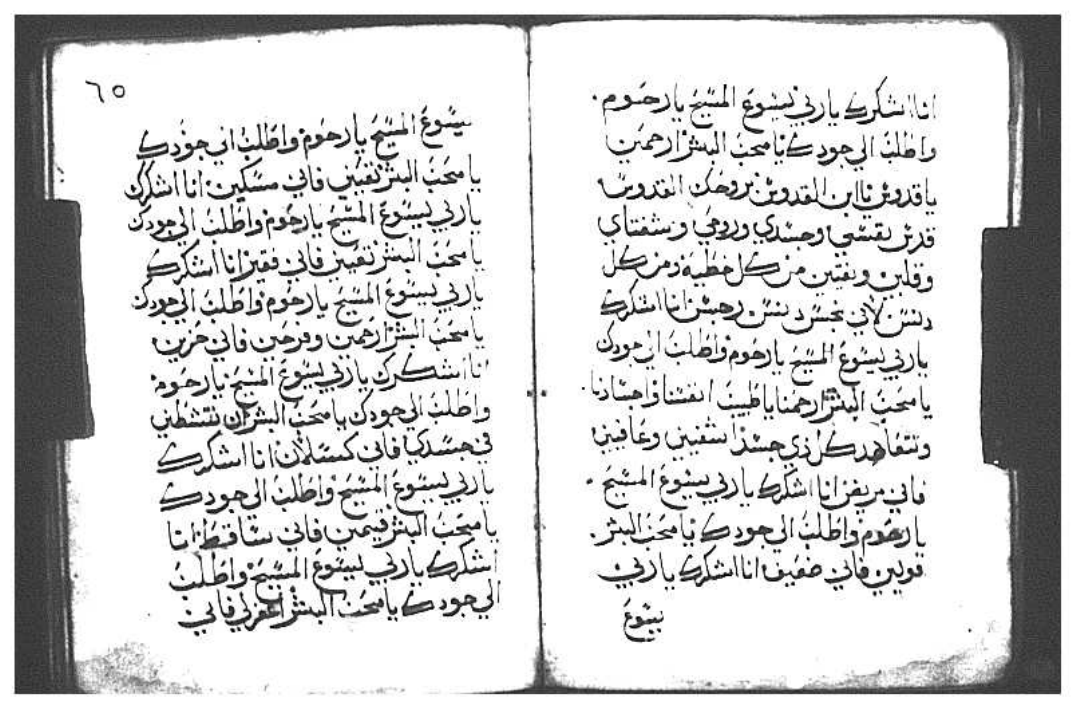 انا اشكرك يا ربي يسوع المسيح يا رحوم.
واطلب الي جودك يا محب البشر ارحمني
يا قدوس يا ابن القدوس بروحك القدوس
قدس نفسي وجسدي وروحي وشفتاي
وقلبي ونقيني من كل خطيه ومن كل
دنس لاني نجس دنس رجس انا اشكرك
يا ربي يسوع المسيح يا رحوم واطلب الي جودك
يا محب البشر ارحمنا يا طبيب انفسنا واجسادنا.
وتتعاهد كل ذي جسد اشفيني وعافيني
فاني مريض انا اشكرك يا ربي يسوع المسيح
يا رحوم واطلب الي جودك يا محب البشر.
قويني فاني ضعيف انا اشكرك يا ربي
يسوع
٦٥
يسوع المسيح يا رحوم واطلب الي جودك
يا محب البشر تقيتني فاني مسكين انا اشكرك
يا ربي يسوع المسيح يا رحوم واطلب الي جودك
يا محب البشر تغنيني فاني فقير انا اشكرك
يا ربي يسوع المسيح يا رحوم واطلب الي جودك
يا محب البشر ارحمني وفرحني فاني حزين
انا اشكرك يا ربي يسوع المسيح يا رحوم.
واطلب الي جودك يا محب البشر ان تنشطني
في جسدي فاني كسلان انا اشكرك
يا ربي يسوع المسيح واطلب الي جودك
يا محب البشر قيمني فاني ساقط انا
اشكرك يا ربي يسوع المسيح واطلب
الي جودك يا محب البشر اغفرلي فاني